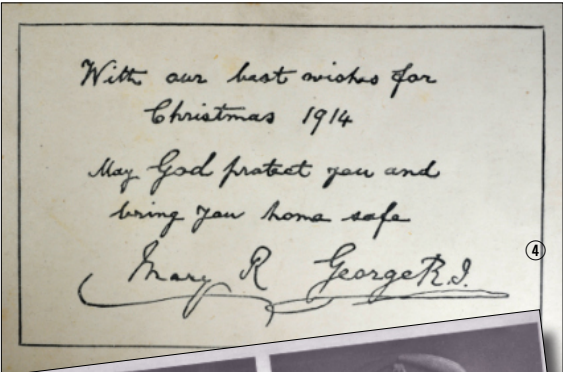 With our best wishes for
Christmas 1914
May God protect you and
bring you home safe
④
Mary R George R.I.